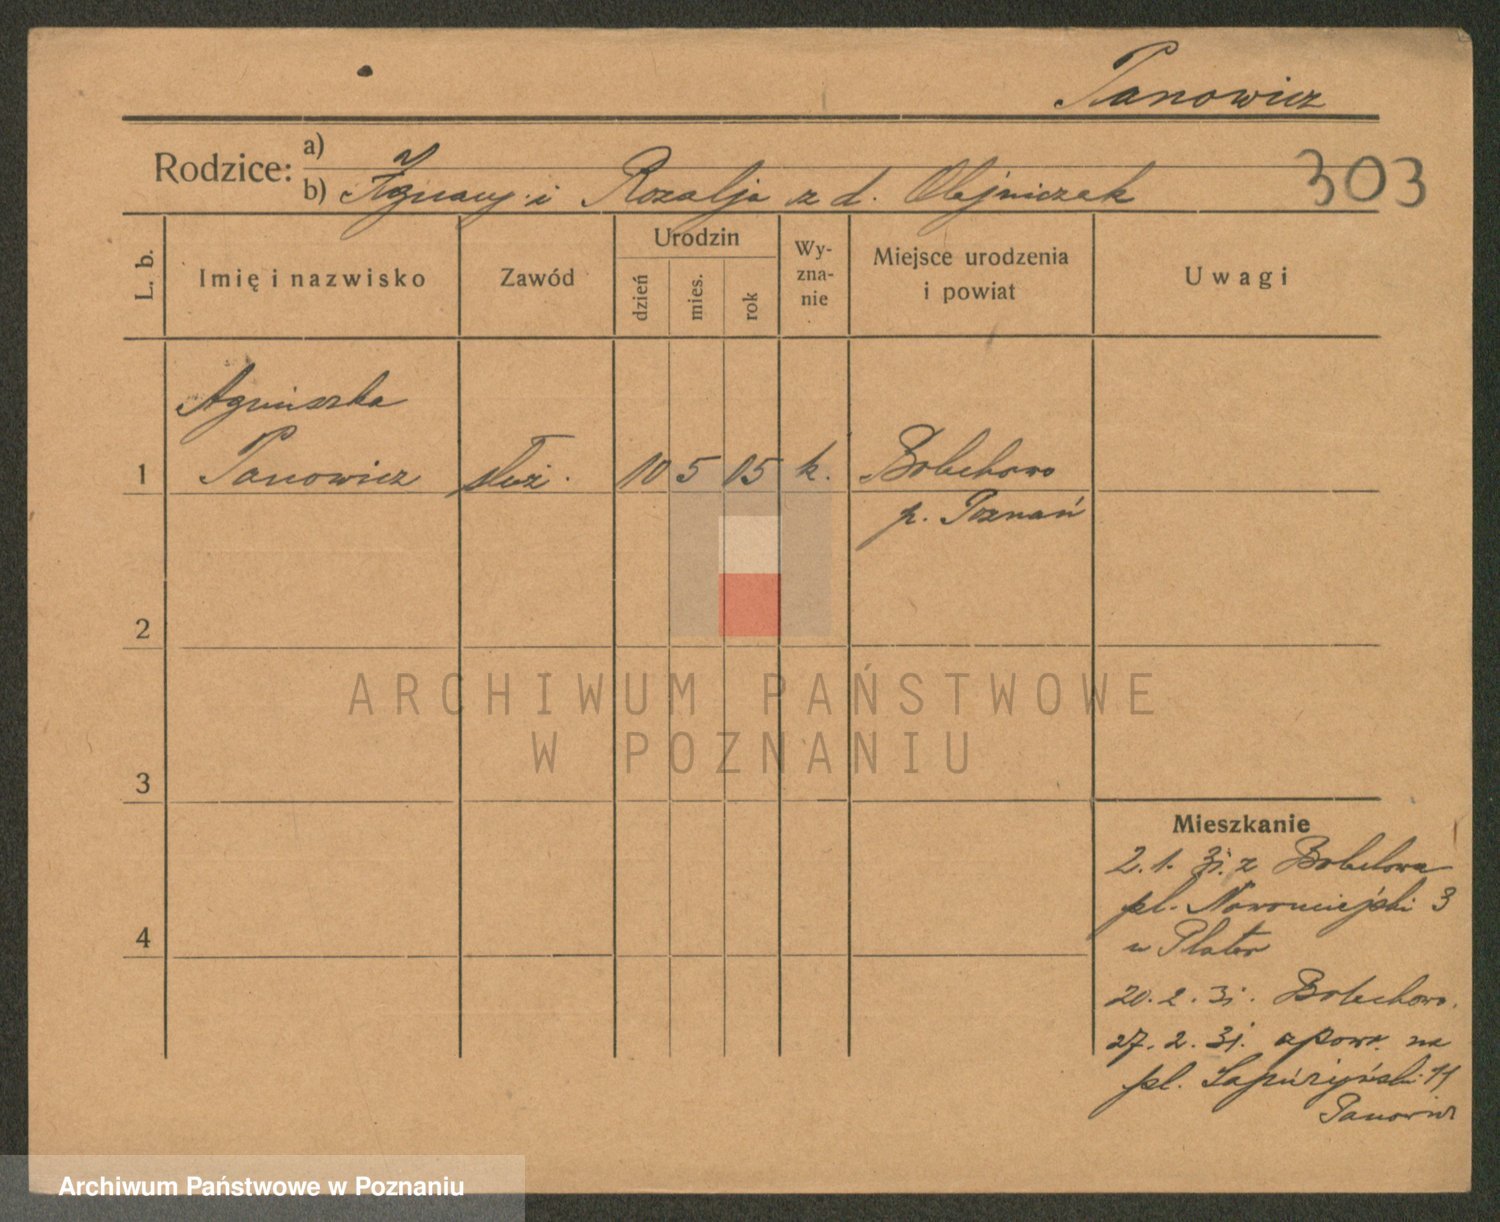 Panowicz
Rodzice:
a)
b) Ignacy i Rozalja z d. Olejniczak
303
L. b.
Imię i nazwisko
Zawód
Urodzin
dzień
mies.
rok
Wy-
zna-
nie
Miejsce urodzenia
i powiat
Uwagi
Agnieszka
1 Panowicz służ. 10 5 15 k. Bolechowo
p. Poznań
2
3
4
ARCHIWUM PAŃSTWOWE
W POZNANIU
Mieszkanie
2.1.31. z Bolechowa
pl. Nowomiejski 3
u Plater
20.2.31. Bolechowo.
27.2.31. z powr. na
pl. Sapieżyński 11
Panowicz
Archiwum Państwowe w Poznaniu